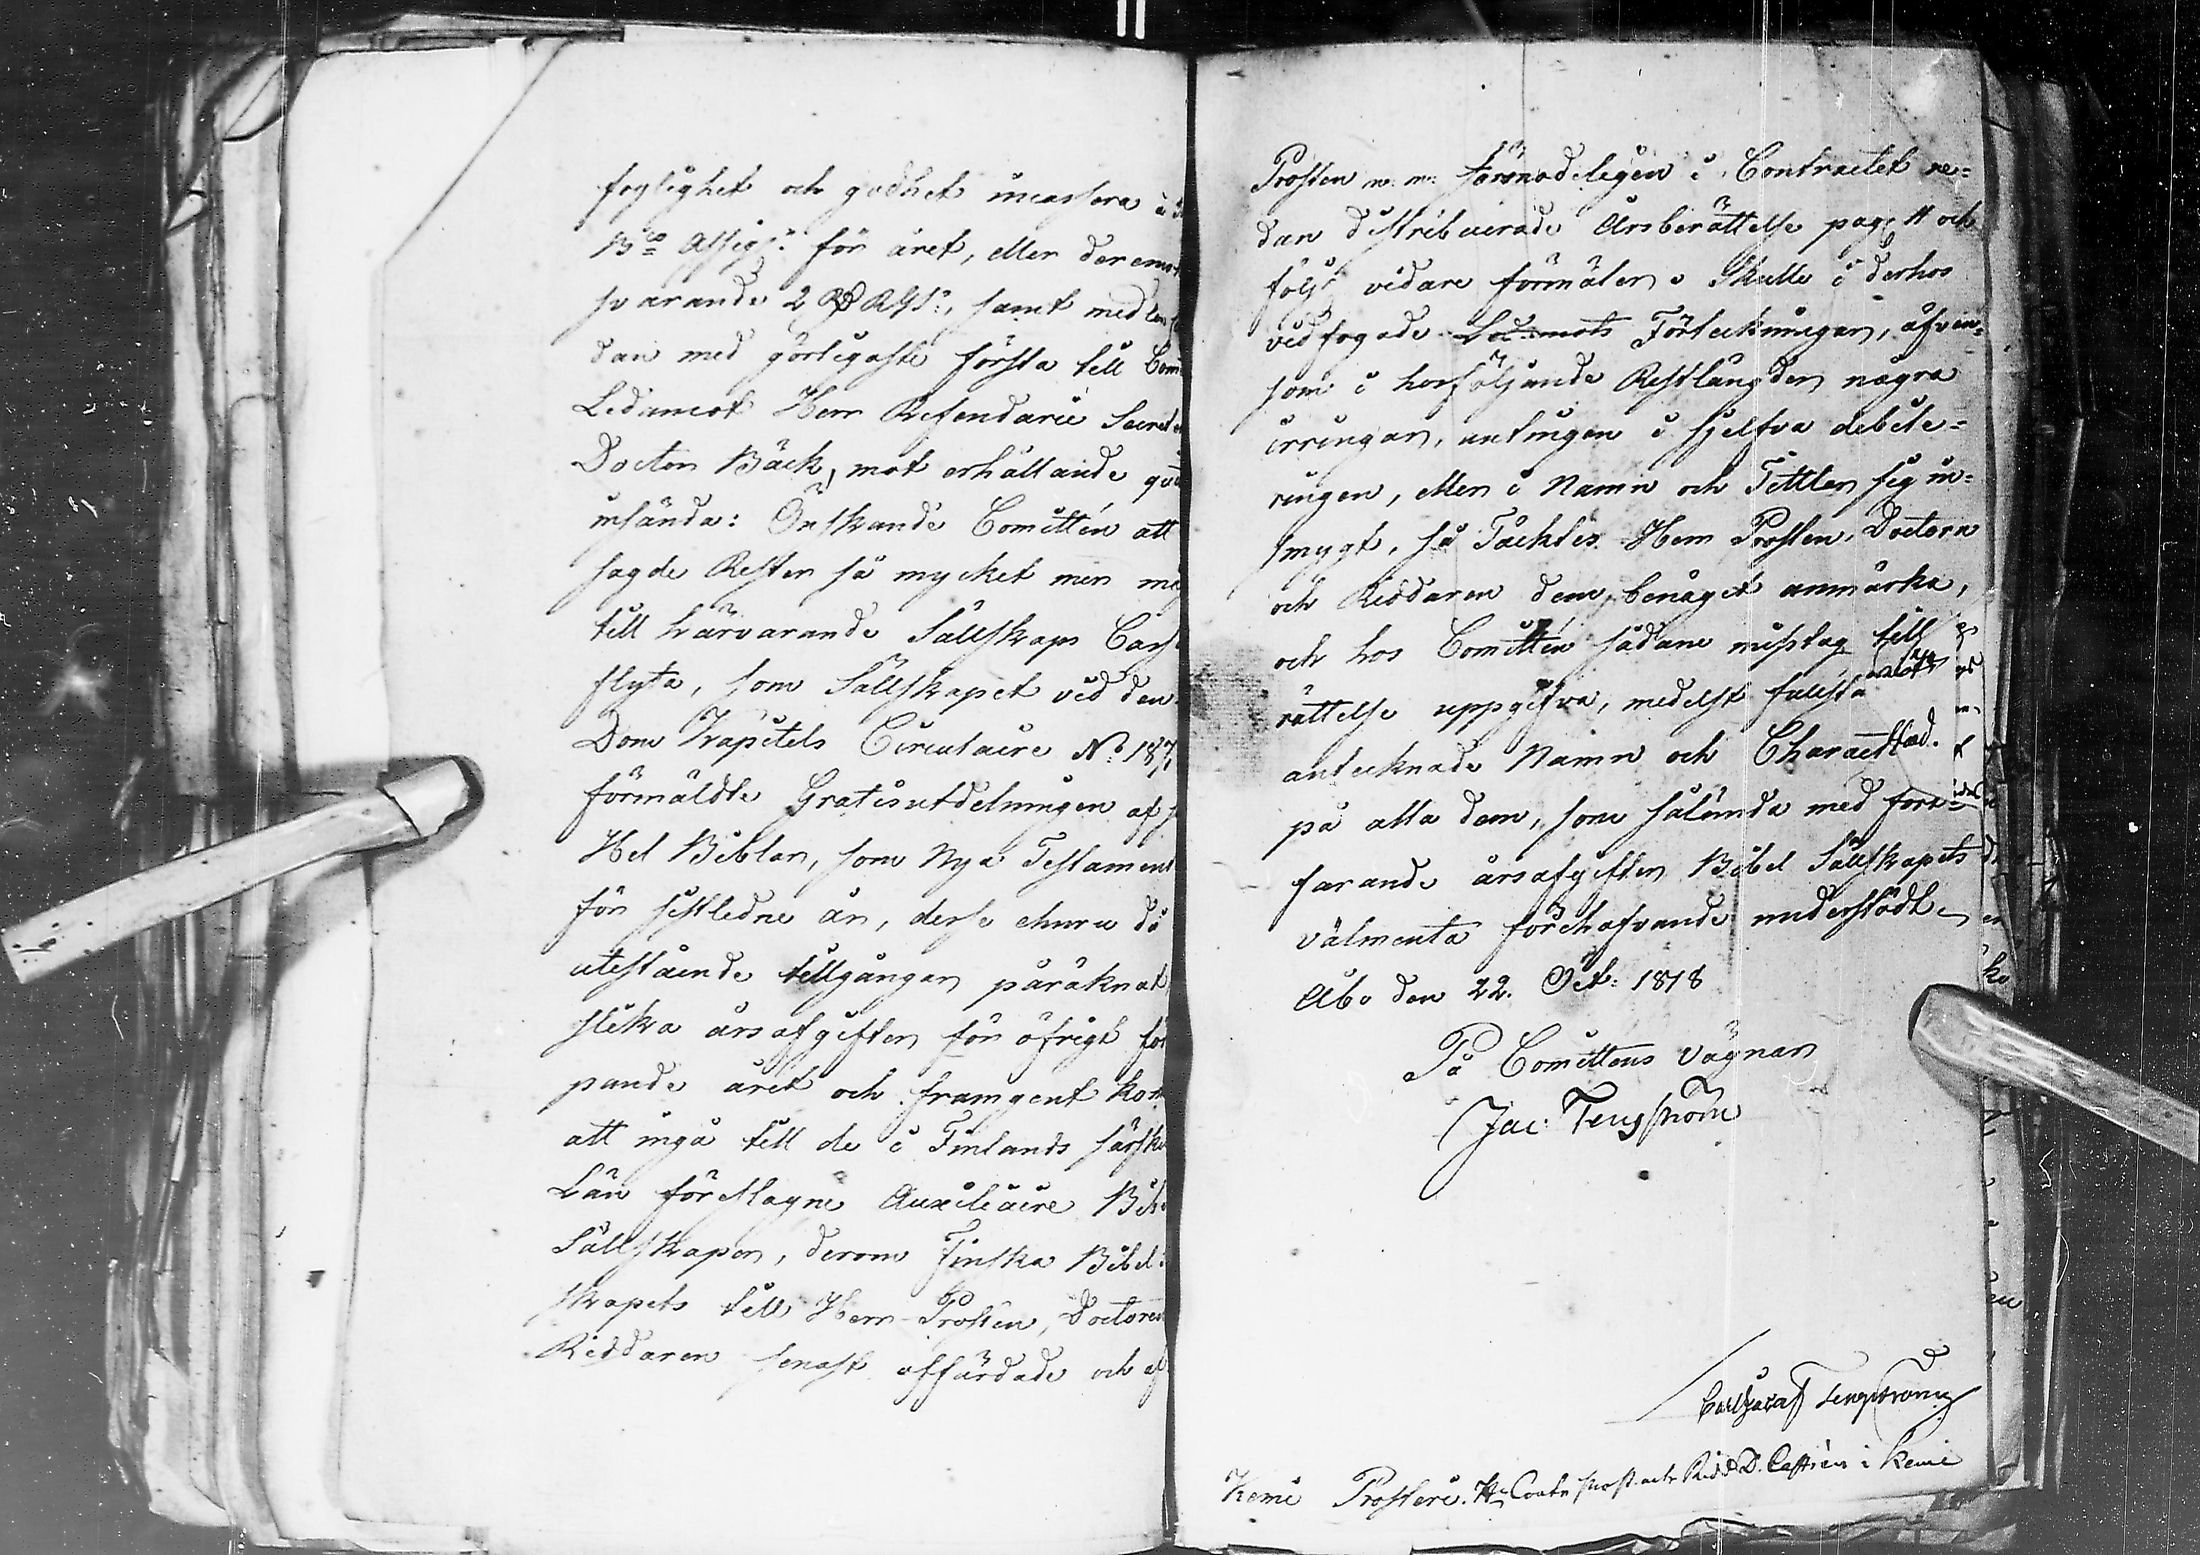 foglighet och godhet incassera à
B:co Assign: för året, eller deremot
svarande 2 Rd RGs:, samt medlen se
dan med görligaste första till Com
Ledamot Herr Referendarie Secret
Doctor Bäck, mot erhållande qvit
insända: Önskande Comitten att
sagde Rester så mycket mer må
till härvarande Sällskaps Cassa
flyta, som Sällskapet vid den
Dom Kapitels Circulaire No 187
förmäldte Gratisutdelningen af
Hel Biblar, som Nya Testament
för sistledne år, desse ehuru då
utestående tillgångar påräknat,
slika årsafgifter för öfrigt för
pande året och framgent kom
att ingå till de i Finlands särski
Län föreslagne Auxiliaire Bib
Sällskaper, derom Finska Bibel
skapets till Herr Prosten, Doctoren
Riddaren senast affärdade och af
Prosten m. m. förmodeligen i Contractet re=
dan distribuerade Årsberättelse pag. 11 och
följ: vidare förmäler. Skulle i derhos
vidfogade Ledamots Förteckningar, äfven=
som i hosföljande Restlängder några
irringar, antingen i sjelfva debite=
ringen, eller i Namn och Tittlar sig in=
smygt, så Täcktes Herr Prosten, Doctorn
och Riddaren dem benäget anmärka,
och hos Comitten sådane misstag till
rättelse uppgifva, medelst fullst
antecknade Namn och Charact
på alla dem, som sålunda med fort=
farande årsafgifter Bibel Sällskapets
välmenta förehafvande understödt.
Åbo den 22. Oct: 1818
På Comittens vägnar
Jac: Tengström
Carl Gustaf Tengström
Kemi Prosteri. H. Contr Prost och Ridd D. Castrén i Kemi